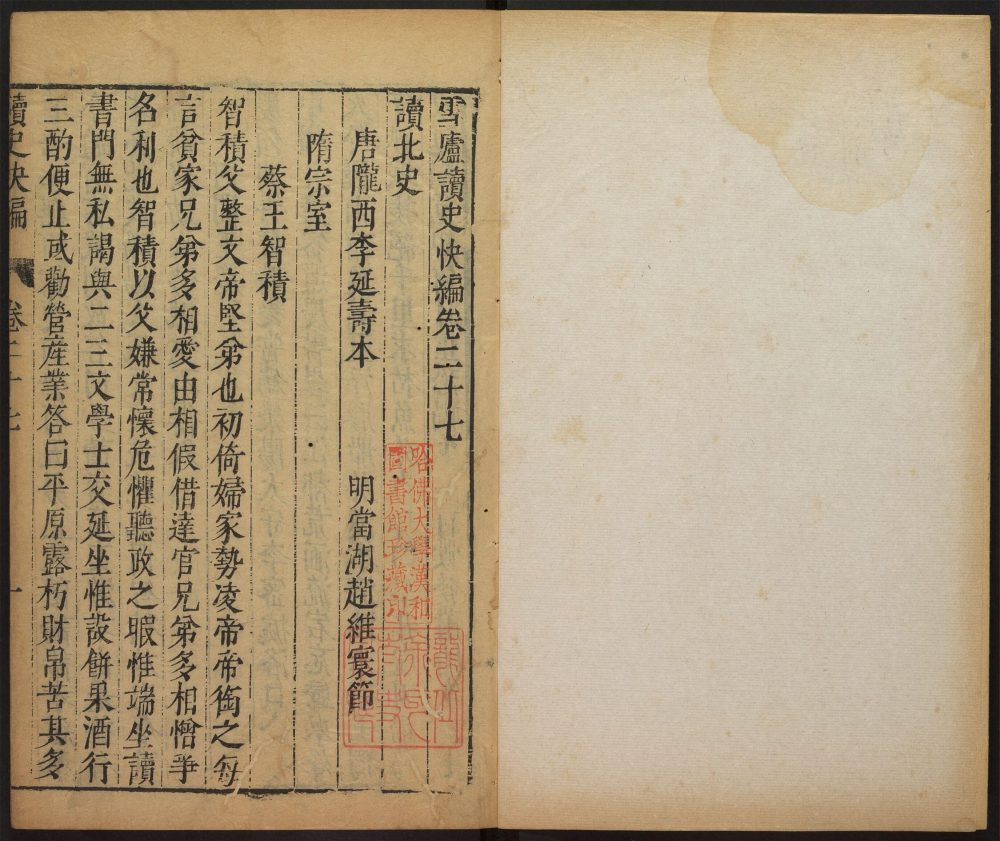 雪廬讀史快編卷二十七
讀北史
唐隴西李延壽本 明當湖趙維寰節
隋宗室
蔡王智積
智積父整文帝堅弟也初倚婦家勢凌帝帝銜之每
言貧家兄弟多相愛由相假借達官兄弟多相憎爭
名利也智積以父嫌常懷危懼聽政之暇惟端坐讀
書門無私謁與二三文學士交延坐惟設餅果酒行
三酌便止或勸營産業答曰平原露朽財帛苦其多
讀史快編 卷二十七 一
哈佛大學漢和
圖書館珍藏印